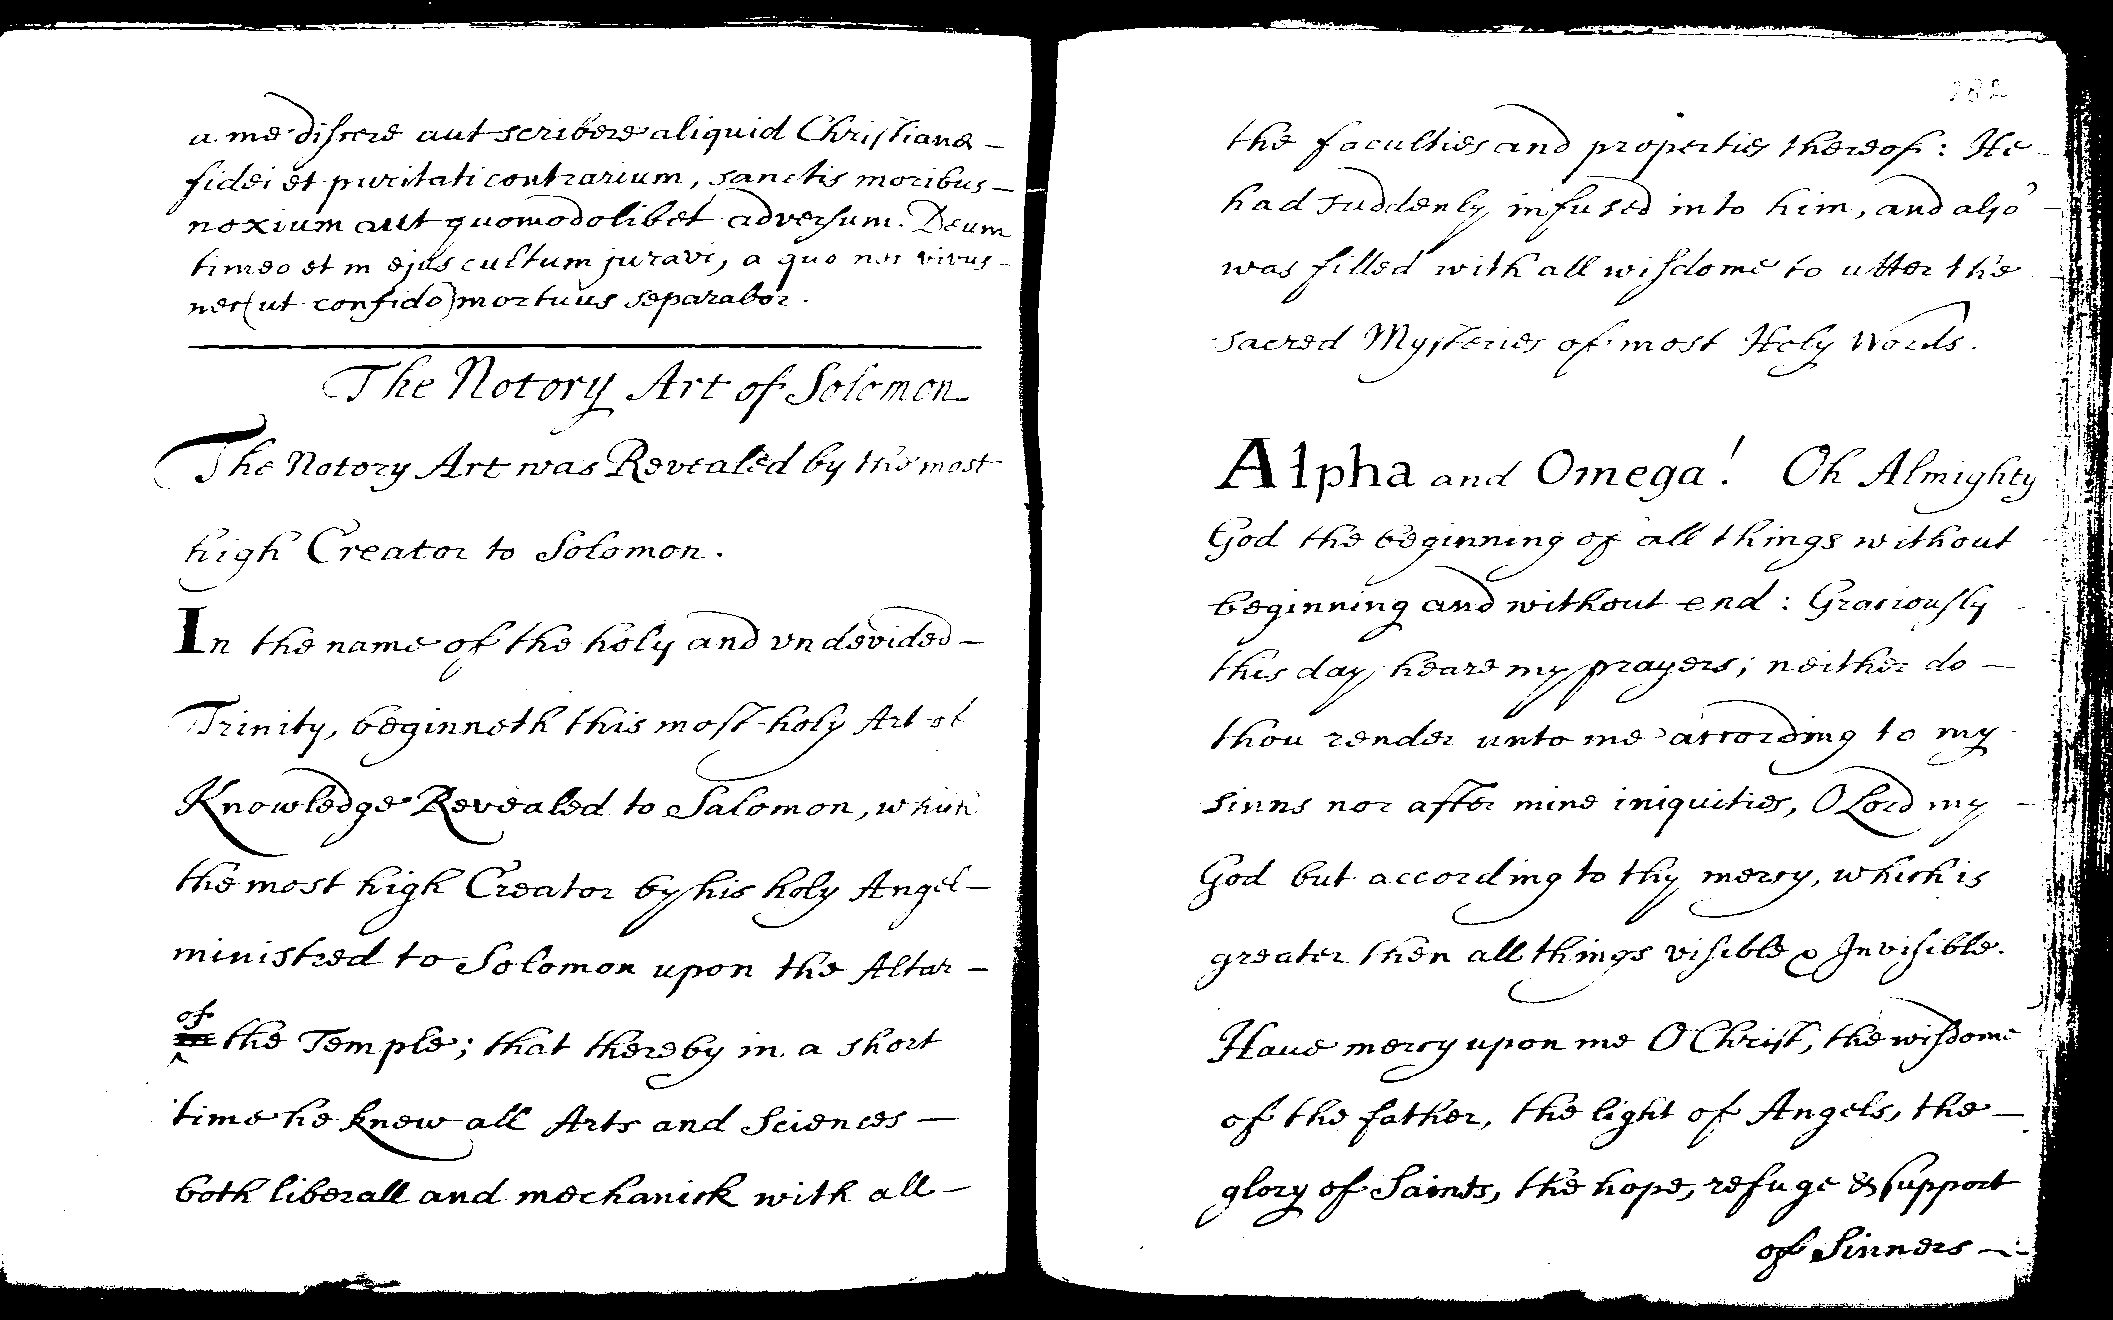 a me discere aut scribere aliquid Christianæ –
fidei et puritati contrarium, sanctis moribus –
noxium aut quomodolibet adversum. Deum
timeo et in ejus cultum juravi, a quo nec vivus –
nec (ut confido) mortuus separabor.
The Notory Art of Solomon
The Notory Art was Revealed by the most
high Creator to Solomon.
In the name of the holy and vndevided –
Trinity, beginneth this most holy Art of
Knowledge Revealed to Salomon, which
the most high Creator by his holy Angel –
ministred to Solomon upon the Altar –
of
the Temple; that thereby in a short
time he knew all Arts and Sciences –
both liberall and mechanick with all –
182
the faculties and properties thereof: He –
had suddenly infused into him, and also –
was filled with all wisdome to utter the
sacred Mysteries of most Holy Words.
Alpha and Omega! Oh Almighty
God the beginning of all things without
beginning and without end: Graciously
this day heare my prayers; neither do –
thou render unto me according to my
sinns nor after mine iniquities, O Lord my –
God but according to thy mercy, which is
greater then all things visible & Invisible.
Haue mercy upon me O Christ, the wisdome
of the father, the light of Angels, the –
glory of Saints, the hope, refuge & support
of Sinners –